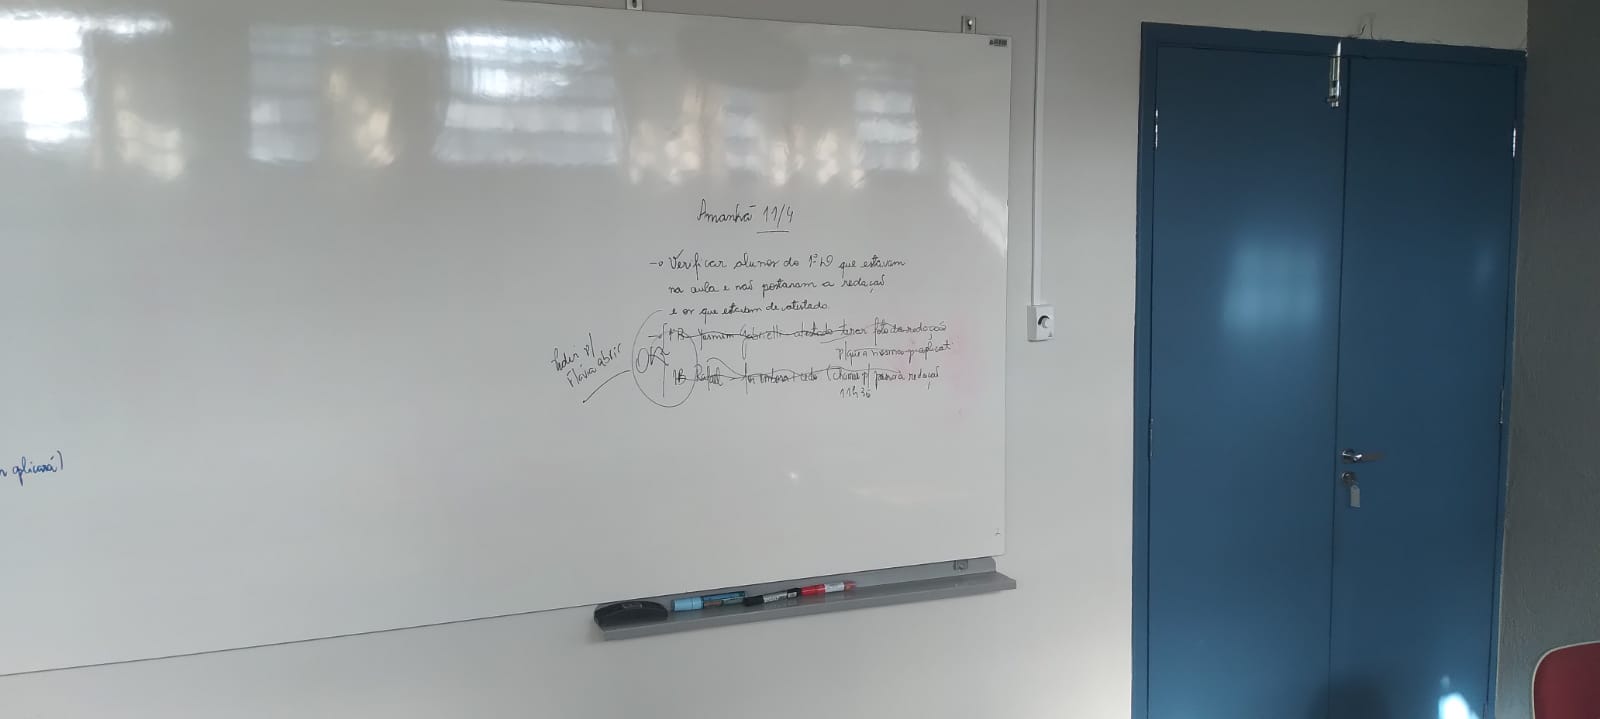 Amanhã 11/4
→ Verificar alunos do 1º D que estavam
na aula e não postaram a redação
e os que estavam de atestado.
→ 1ºB Yasmim Gabrielli atestado tirar foto da redação
p/ que a mesma
OK
1B Rafael foi embora + cedo (chamar p/ a redação
11h36
Pedir p/
Flávia abrir
aplicará)